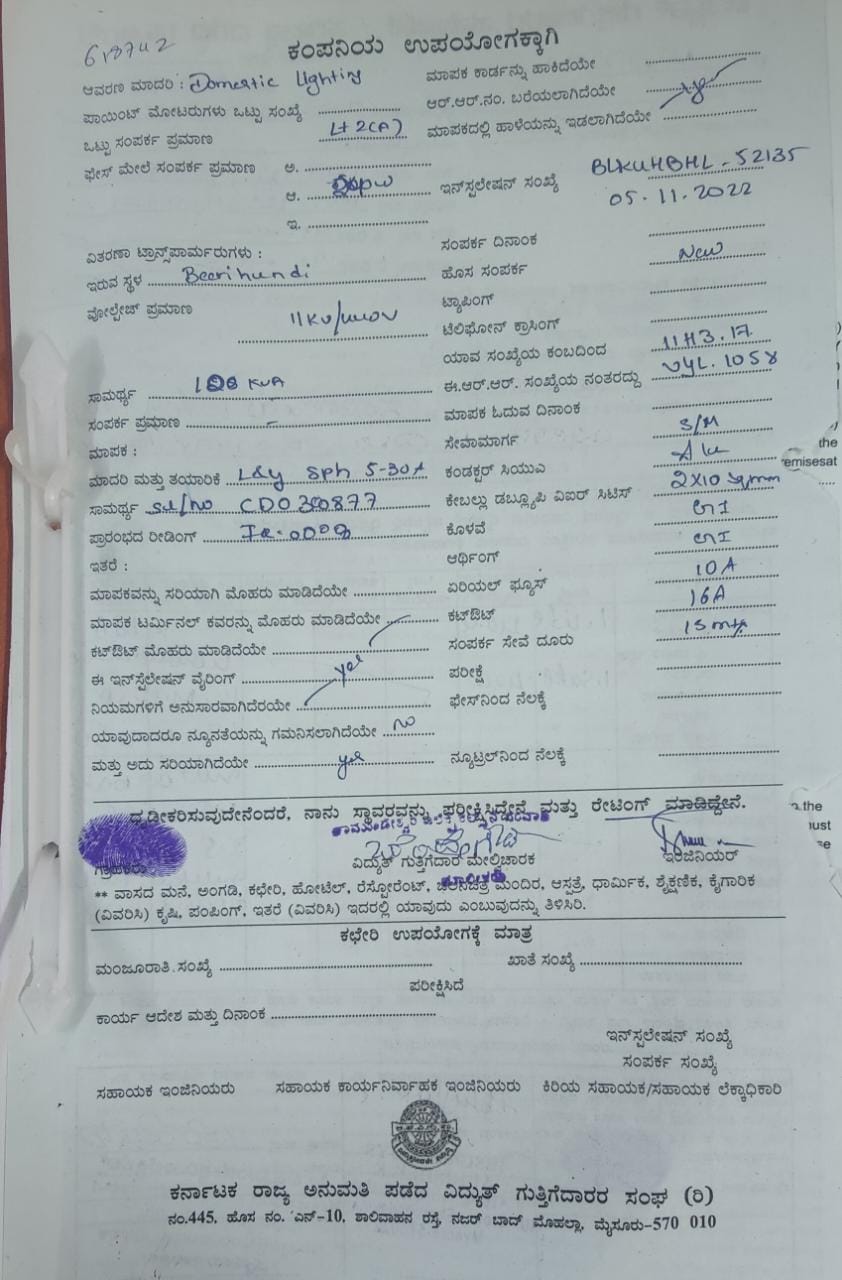 618742
ಕಂಪನಿಯ ಉಪಯೋಗಕ್ಕಾಗಿ
ಆವರಣ ಮಾದರಿ : Domestic Lighting
ಮಾಪಕ ಕಾರ್ಡನ್ನು ಹಾಕಿದೆಯೇ
ಪಾಯಿಂಟ್ ಮೋಟರುಗಳು ಒಟ್ಟು ಸಂಖ್ಯೆ
ಆರ್.ಆರ್.ನಂ. ಬರೆಯಲಾಗಿದೆಯೇ
ಒಟ್ಟು ಸಂಪರ್ಕ ಪ್ರಮಾಣ Lt 2(A)
ಮಾಪಕದಲ್ಲಿ ಹಾಳೆಯನ್ನು ಇಡಲಾಗಿದೆಯೇ
ಫೇಸ್ ಮೇಲೆ ಸಂಪರ್ಕ ಪ್ರಮಾಣ ಅ.
ಆ.
ಇನ್‌ಸ್ಪಲೇಷನ್ ಸಂಖ್ಯೆ BLKUHBHL - 52135
05-11-2022
ಇ.
ಸಂಪರ್ಕ ದಿನಾಂಕ
ವಿತರಣಾ ಟ್ರಾನ್ಸ್‌ಪಾರ್ಮರುಗಳು :
ಹೊಸ ಸಂಪರ್ಕ New
ಇರುವ ಸ್ಥಳ Beerihundi
ಟ್ಯಾಪಿಂಗ್
ವೋಲ್ಟೇಜ್ ಪ್ರಮಾಣ
ಟೆಲಿಫೋನ್ ಕ್ರಾಸಿಂಗ್
ಯಾವ ಸಂಖ್ಯೆಯ ಕಂಬದಿಂದ 11H3.17
ಸಾಮರ್ಥ್ಯ 100 KVA
ಈ.ಆರ್.ಆರ್. ಸಂಖ್ಯೆಯ ನಂತರದ್ದು VYL.1058
ಸಂಪರ್ಕ ಪ್ರಮಾಣ -
ಮಾಪಕ ಓದುವ ದಿನಾಂಕ
ಮಾಪಕ :
ಸೇವಾಮಾರ್ಗ S/M
ಮಾದರಿ ಮತ್ತು ತಯಾರಿಕೆ L&y Sph 5-30A
ಕಂಡಕ್ಟರ್ ಸಿಯುಎ
ಸಾಮರ್ಥ್ಯ
ಕೇಬಲ್ಲು ಡಬ್ಲ್ಯೂಪಿ ವಿಐರ್ ಸಿಟಿಸ್ 2X10 Sqmm
ಪ್ರಾರಂಭದ ರೀಡಿಂಗ್
ಕೊಳವೆ GI
ಇತರೆ :
ಆರ್ಥಿಂಗ್ GI
ಮಾಪಕವನ್ನು ಸರಿಯಾಗಿ ಮೊಹರು ಮಾಡಿದೆಯೇ
ಏರಿಯಲ್ ಫ್ಯೂಸ್ 10A
ಮಾಪಕ ಟರ್ಮಿನಲ್ ಕವರನ್ನು ಮೊಹರು ಮಾಡಿದೆಯೇ
ಕಟ್‌ಔಟ್ 16A
ಕಟ್‌ಔಟ್ ಮೊಹರು ಮಾಡಿದೆಯೇ
ಸಂಪರ್ಕ ಸೇವೆ ದೂರು 15 mtr
ಈ ಇನ್‌ಸ್ಪೆಲೇಷನ್ ವೈರಿಂಗ್ yes
ಪರೀಕ್ಷೆ
ನಿಯಮಗಳಿಗೆ ಅನುಸಾರವಾಗಿದೆರಯೇ
ಫೇಸ್‌ನಿಂದ ನೆಲಕ್ಕೆ
ಯಾವುದಾದರೂ ನ್ಯೂನತೆಯನ್ನು ಗಮನಿಸಲಾಗಿದೆಯೇ no
ಮತ್ತು ಅದು ಸರಿಯಾಗಿದೆಯೇ yes
ನ್ಯೂಟ್ರಲ್‌ನಿಂದ ನೆಲಕ್ಕೆ
ಧೃಡೀಕರಿಸುವುದೇನೆಂದರೆ, ನಾನು ಸ್ಥಾವರವನ್ನು ಪರೀಕ್ಷಿಸಿದ್ದೇನೆ ಮತ್ತು ರೇಟಿಂಗ್ ಮಾಡಿದ್ದೇನೆ.
ಗ್ರಾಹಕರು
ವಿದ್ಯುತ್ ಗುತ್ತಿಗೆದಾರ ಮೇಲ್ವಿಚಾರಕ
ಇಂಜಿನಿಯರ್
** ವಾಸದ ಮನೆ, ಅಂಗಡಿ, ಕಛೇರಿ, ಹೋಟೆಲ್, ರೆಸ್ಟೋರೆಂಟ್, ಚಲನಚಿತ್ರ ಮಂದಿರ, ಆಸ್ಪತ್ರೆ, ಧಾರ್ಮಿಕ, ಶೈಕ್ಷಣಿಕ, ಕೈಗಾರಿಕ
(ವಿವರಿಸಿ) ಕೃಷಿ, ಪಂಪಿಂಗ್, ಇತರೆ (ವಿವರಿಸಿ) ಇದರಲ್ಲಿ ಯಾವುದು ಎಂಬುವುದನ್ನು ತಿಳಿಸಿರಿ.
ಕಛೇರಿ ಉಪಯೋಗಕ್ಕೆ ಮಾತ್ರ
ಮಂಜೂರಾತಿ.ಸಂಖ್ಯೆ
ಖಾತೆ ಸಂಖ್ಯೆ
ಪರೀಕ್ಷಿಸಿದೆ
ಕಾರ್ಯ ಆದೇಶ ಮತ್ತು ದಿನಾಂಕ
ಇನ್‌ಸ್ಪಲೇಷನ್ ಸಂಖ್ಯೆ
ಸಂಪರ್ಕ ಸಂಖ್ಯೆ
ಸಹಾಯಕ ಇಂಜಿನಿಯರು ಸಹಾಯಕ ಕಾರ್ಯನಿರ್ವಾಹಕ ಇಂಜಿನಿಯರು ಕಿರಿಯ ಸಹಾಯಕ/ಸಹಾಯಕ ಲೆಕ್ಕಾಧಿಕಾರಿ
ಕರ್ನಾಟಕ ರಾಜ್ಯ ಅನುಮತಿ ಪಡೆದ ವಿದ್ಯುತ್ ಗುತ್ತಿಗೆದಾರರ ಸಂಘ (ರಿ)
ನಂ.445, ಹೊಸ ನಂ. ಎನ್-10, ಶಾಲಿವಾಹನ ರಸ್ತೆ, ನಜರ್ ಬಾದ್ ಮೊಹಲ್ಲಾ, ಮೈಸೂರು-570 010